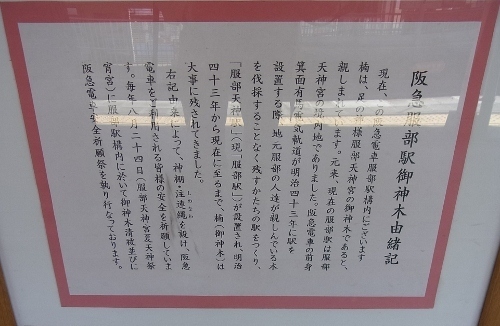 阪急服部駅御神木由緒記
現在、この阪急電車服部駅構内にございます
楠は、足の神様服部天神宮の御神木であると、
親しまれています。元来、現在の服部駅は服部
天神宮の境内地でありました。阪急電車の前身
箕面有馬電気軌道が明治四十三年に駅を
設置する際、地元服部の人達が親しんでいる木
を伐採することなく残すかたちの駅をつくり、
「服部天神駅」(現「服部駅」)が設置され、明治
四十三年から現在に至るまで、楠(御神木)は
大事に残されてきました。
右記由来によって、神棚・注連縄を設け、阪急
しめなわ
電車をご利用される皆様の安全を祈願していま
す。毎年八月二十四日(服部天神宮夏天神祭
宵宮)に服部駅構内に於いて御神木清祓並びに
阪急電車安全祈願祭を執り行なっております。